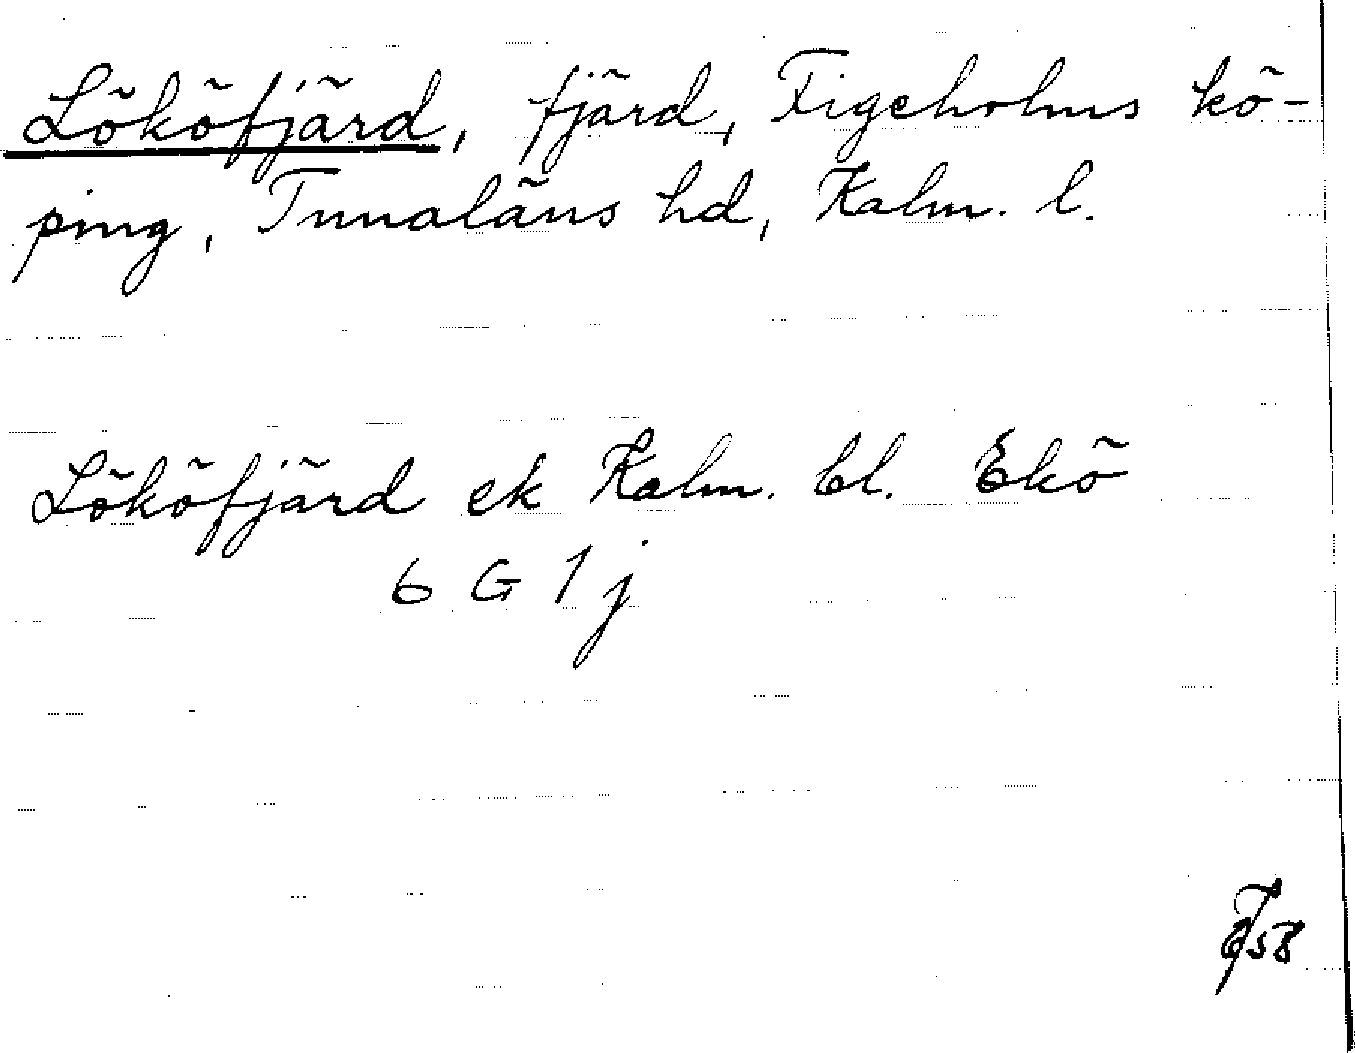 Lököfjärd, fjärd, Figeholms kö-
ping, Tunaläns hd, Kalm. l.
Lököfjärd ek Kalm. bl. Ekö
6 G 1 j
58